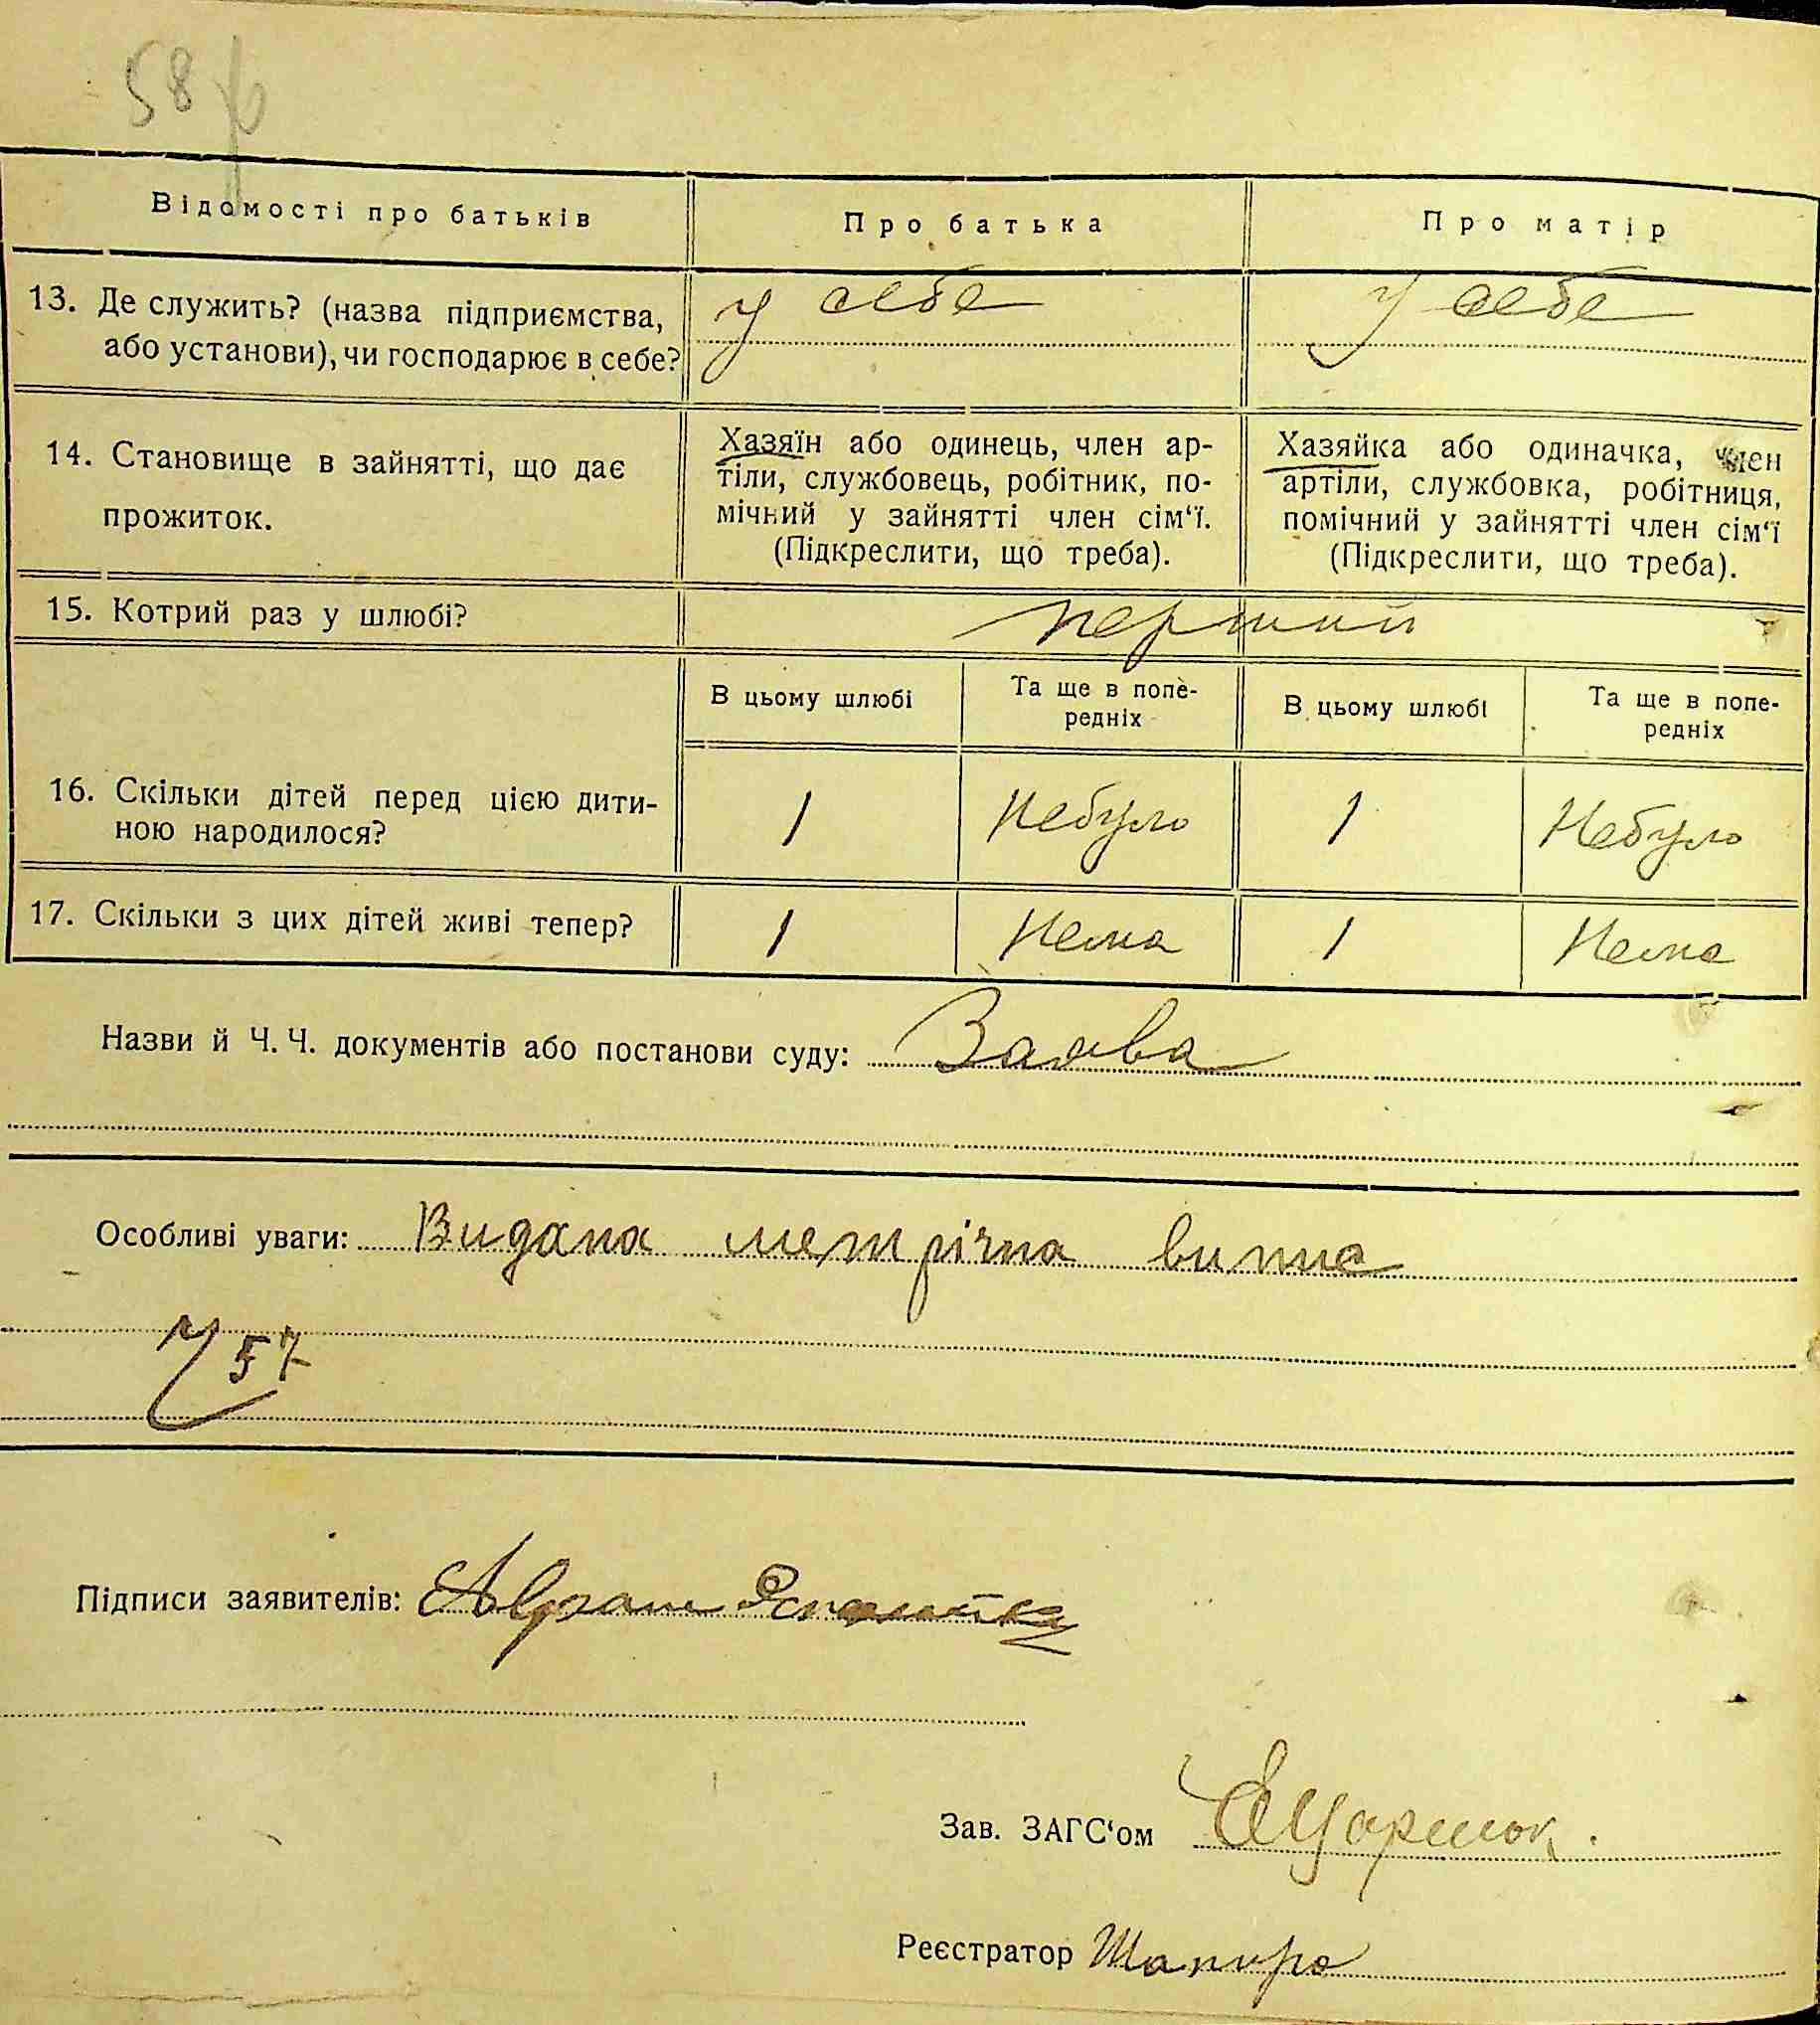 58
Відомості про батьків Про батька Про матір
13. Де служить? (назва підприємства, у себе у себе
або установи), чи господарює в себе?
14. Становище в зайнятті, що дає Хазяїн або одинець, член ар- Хазяйка або одиначка, член
тіли, службовець, робітник, по- артіли, службовка, робітниця,
прожиток. мічний у зайнятті член сім‘ї. помічний у зайнятті член сім‘ї
(Підкреслити, що треба). (Підкреслити, що треба).
15. Котрий раз у шлюбі? перший
В цьому шлюбі Та ще в попе- В цьому шлюбі Та ще в попе-
редніх редніх
16. Скільки дітей перед цією дити- 1 Небуло 1 Небуло
ною народилося?
17. Скільки з цих дітей живі тепер? 1 Нема 1 Нема
Назви й Ч. Ч. документів або постанови суду: Заява
Особливі уваги: Видана метрічна випис
57
Підписи заявителів: Аврам
Зав. ЗАГС‘ом
Реєстратор Шапиро